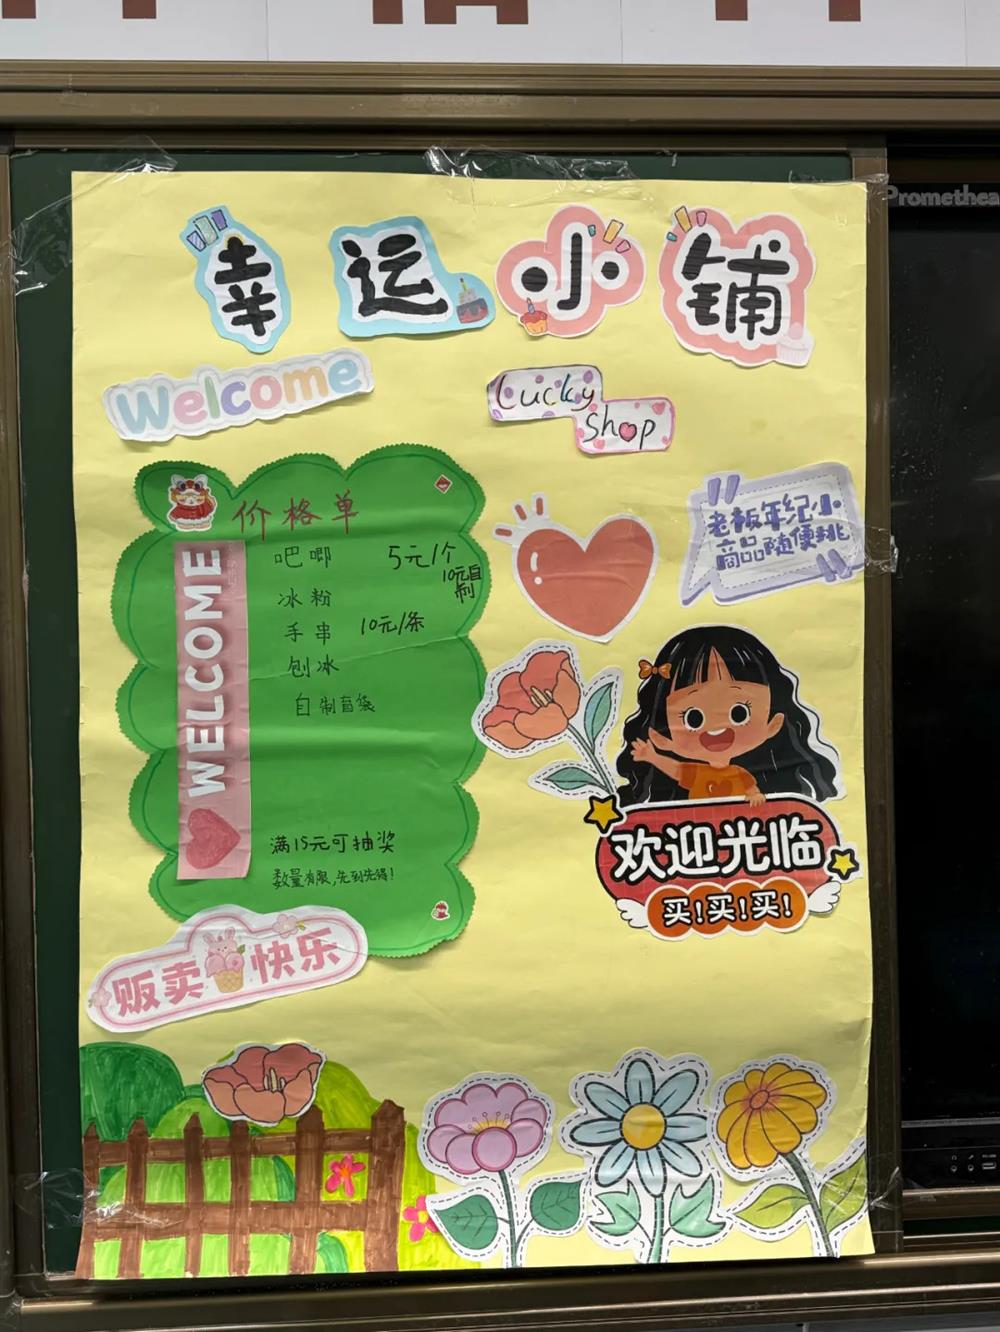 Promethea
幸运小铺
Welcome
Lucky
Shop
老板年纪小
商品随便挑
价格单
WELCOME
吧唧 5元/个
10元自制
冰粉
手串 10元/条
刨冰
自制盲袋
满15元可抽奖
数量有限,先到先得!
欢迎光临
买!买!买!
贩卖快乐